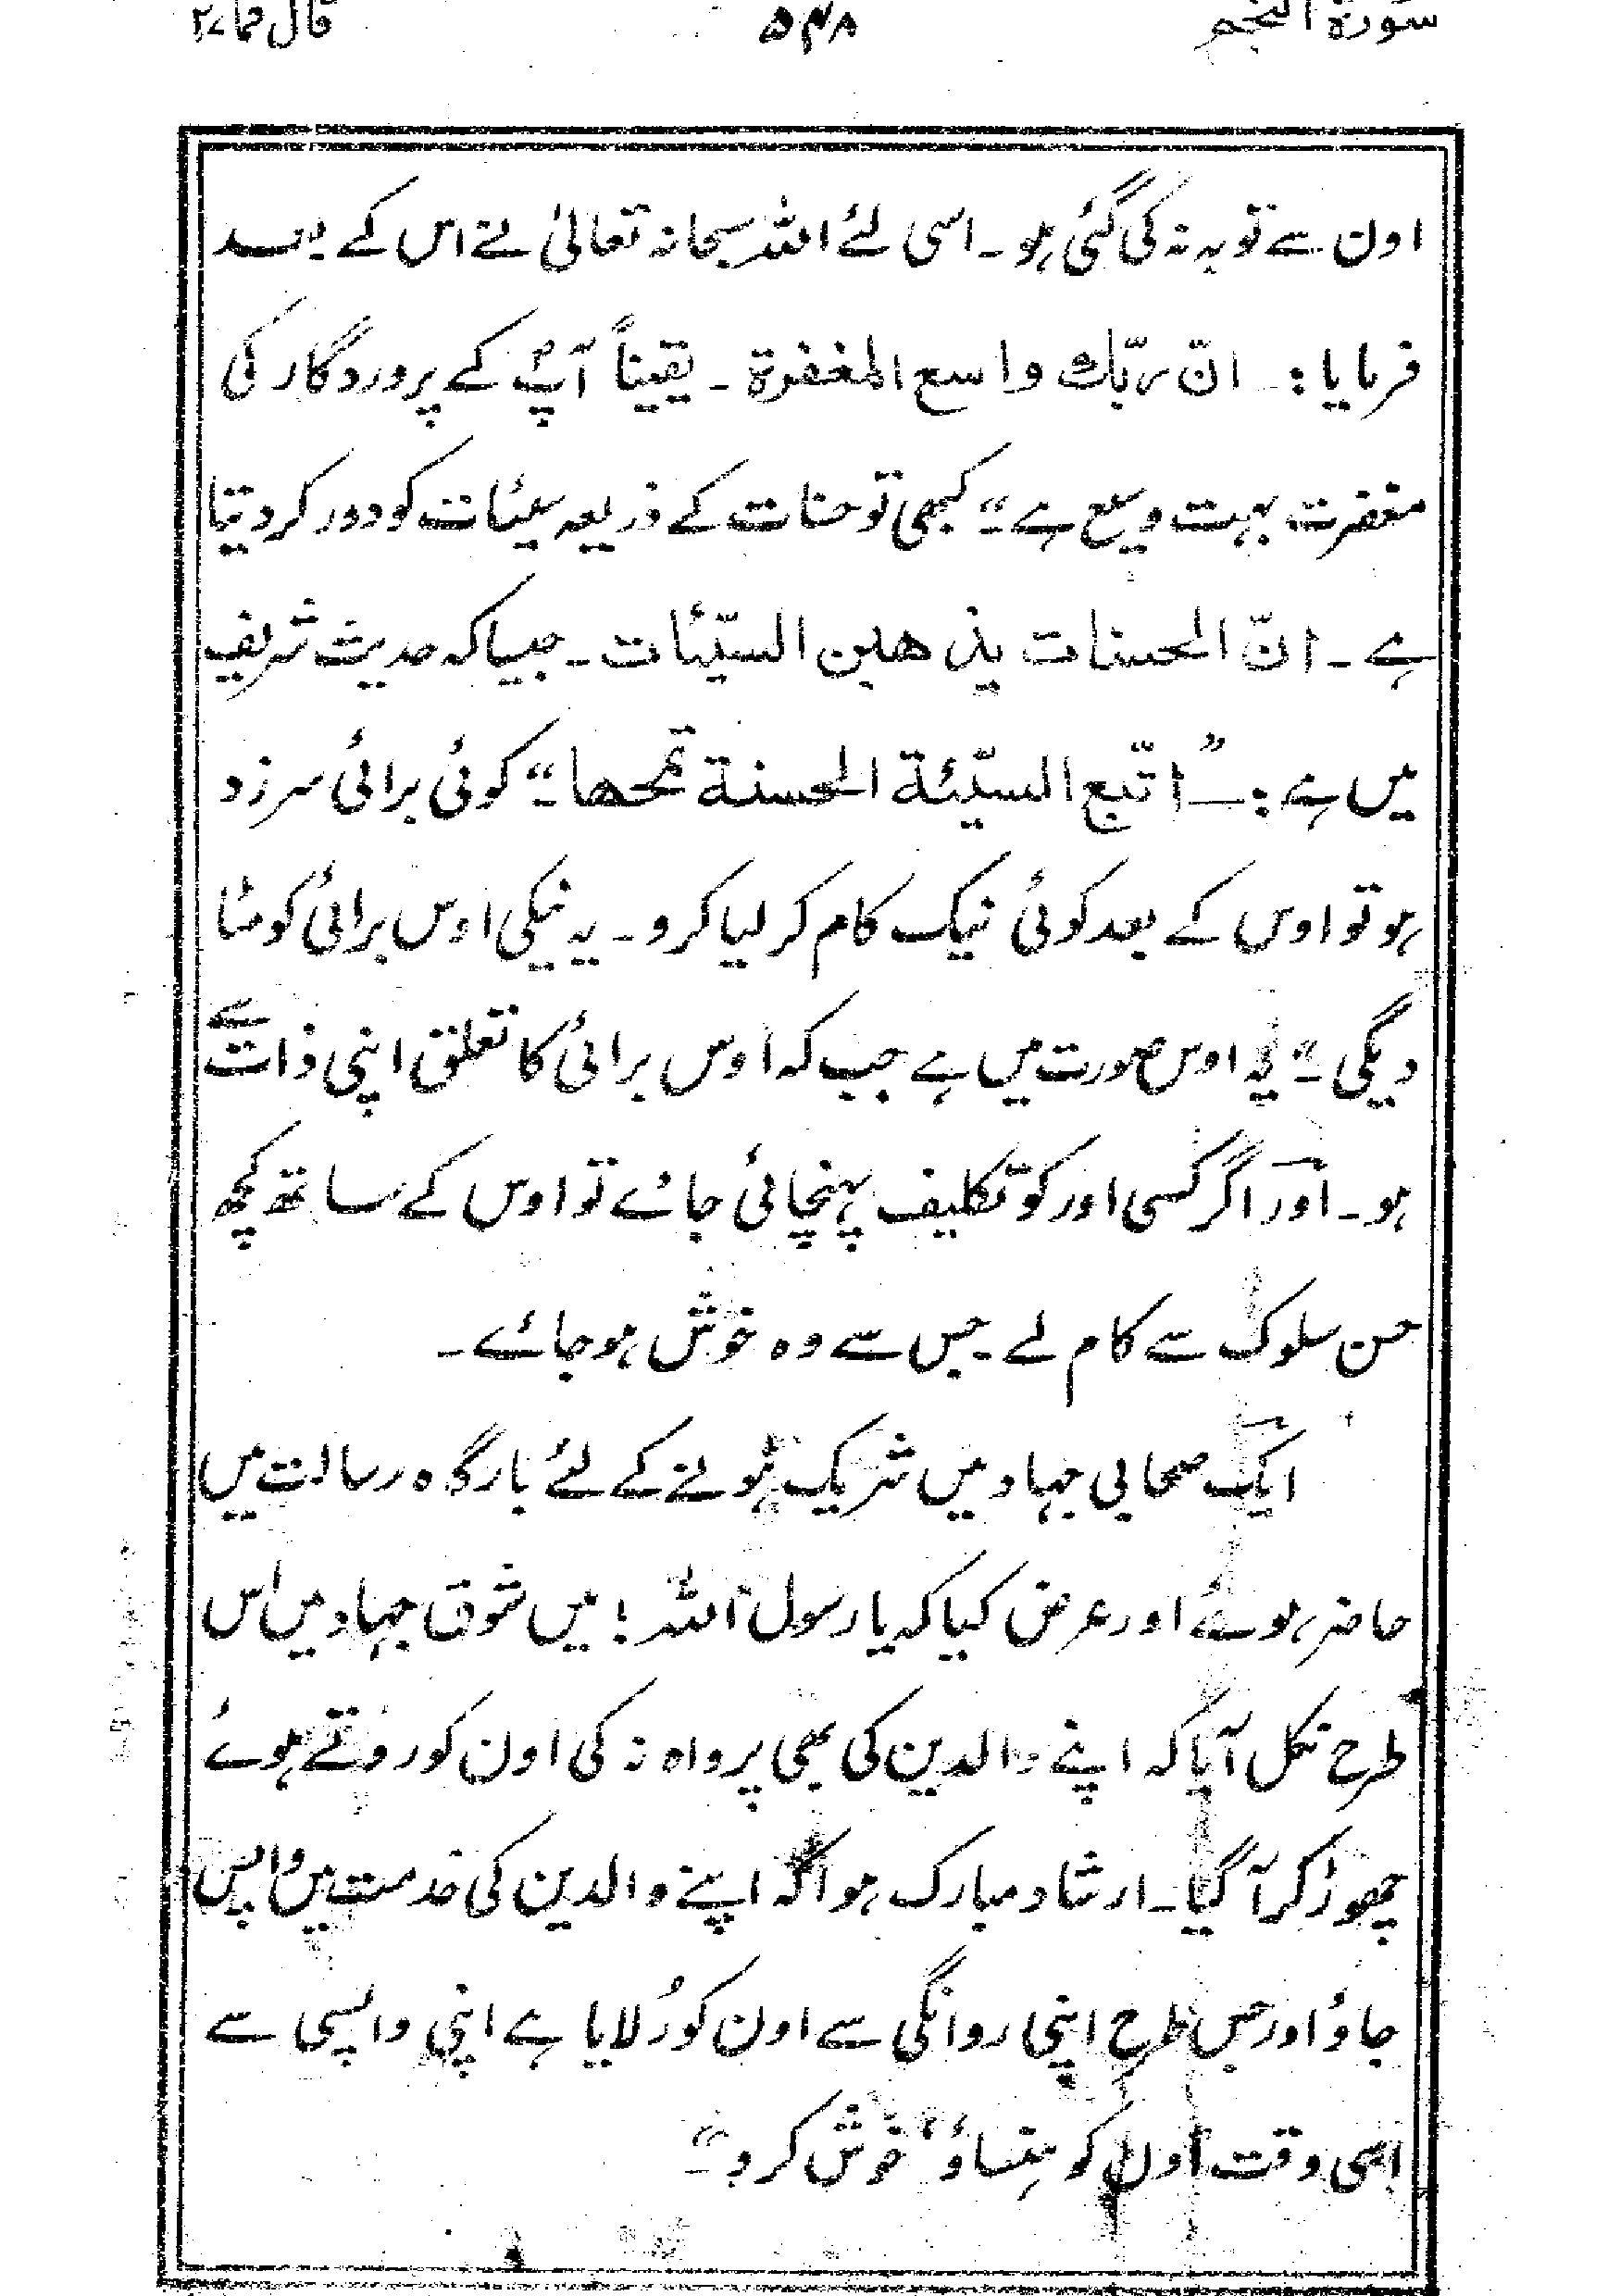 سورة النجم ۵۴۸ قال فما ۲۷
اون سے توبہ نہ کی گئی ہو۔ اسی لئے اللہ سبحانہ تعالیٰ نے اس کے بعد
فرمایا: انّ ربّك واسع المغفرة۔ یقیناً آپؐ کے پروردگار کی
مغفرت بہت وسیع ہے۔“ کبھی تو حسنات کے ذریعہ سیئات کو دور کر دیتا
ہے۔ انّ الحسنات یذهبن السیّئات۔ جیسا کہ حدیث شریف
میں ہے:۔ ”اتّبع السیّئة الحسنة تمحها۔“ کوئی برائی سرزد
ہو تو اوس کے بعد کوئی نیک کام کر لیا کرو۔ یہ نیکی اوس برائی کو مٹا
دیگی۔“ یہ اوس صورت میں ہے جب کہ اوس برائی کا تعلق اپنی ذات سے
ہو۔ اور اگر کسی اور کو تکلیف پہنچائی جائے تو اوس کے ساتھ کچھ
حسن سلوک سے کام لے۔ جس سے وہ خوش ہو جائے۔
ایک صحابی جہاد میں شریک ہونے کے لئے بارگاہ رسالت میں
حاضر ہوئے اور عرض کیا کہ یا رسول اللہ! میں شوق جہاد میں اس
طرح نکل آیا کہ اپنے والدین کی بھی پرواہ نہ کی اون کو روتے ہوئے
چھوڑ کر آ گیا۔ ارشاد مبارک ہوا کہ اپنے والدین کی خدمت میں واپس
جاؤ اور جس طرح اپنی روانگی سے اون کو رُلایا ہے اپنی واپسی سے
اسی وقت اون کو ہنساؤ، خوش کرو۔“